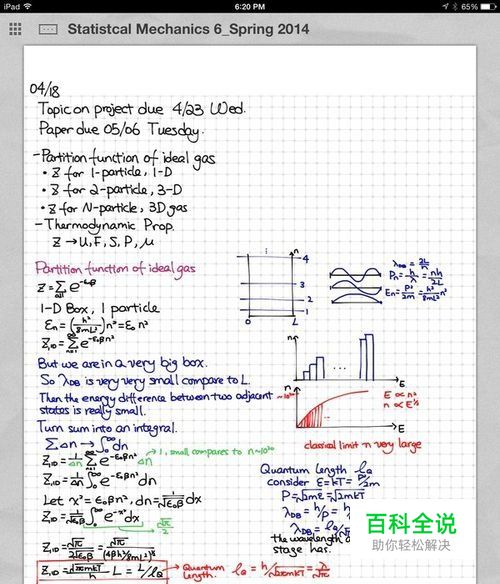 iPad
6:20 PM
65%
Statistcal Mechanics 6_Spring 2014
04/18
Topic on project due 4/23 Wed.
Paper due 05/06 Tuesday.
- Partition function of ideal gas
• Z for 1-particle, 1-D
• Z for 2-particle, 3-D
• Z for N-particle, 3D gas
- Thermodynamic Prop.
Z → U, F, S, P, μ
Partition function of ideal gas
Z = Σ e^-εβ
1-D Box, 1 particle
εn = (h²/8mL²) n² = ε₀ n²
Z₁D = Σ e^-ε₀βn²
n
4
3
2
1
0 L
λDB = 2L/n
Pn = h/λ = nh/2L
En = P²/2m = h²/8mL² n²
But we are in a very big box.
So λDB is very very small compare to L.
Then the energy difference between two adjacent
states is really small.
n
...
E
n
E ∝ n²
n ∝ E^½
E
classical limit n very large
Turn sum into an integral.
Σ Δn → ∫₀^∞ dn
Z₁D = 1/Δn Σ e^-ε₀βn² Δn
1, small compares to n~10¹⁰
Z₁D = ∫₀^∞ e^-ε₀βn² dn
Let x² = ε₀βn², dn = 1/√ε₀β dx
Z₁D = 1/√ε₀β ∫₀^∞ e^-x² dx
√π/2
Quantum Length lQ
consider E = kT = P²/2m
P = √2mE = √2mkT
λDB = h/P =
the wavelength
stage has.
Quantum
length.
百科全说
助你轻松解决